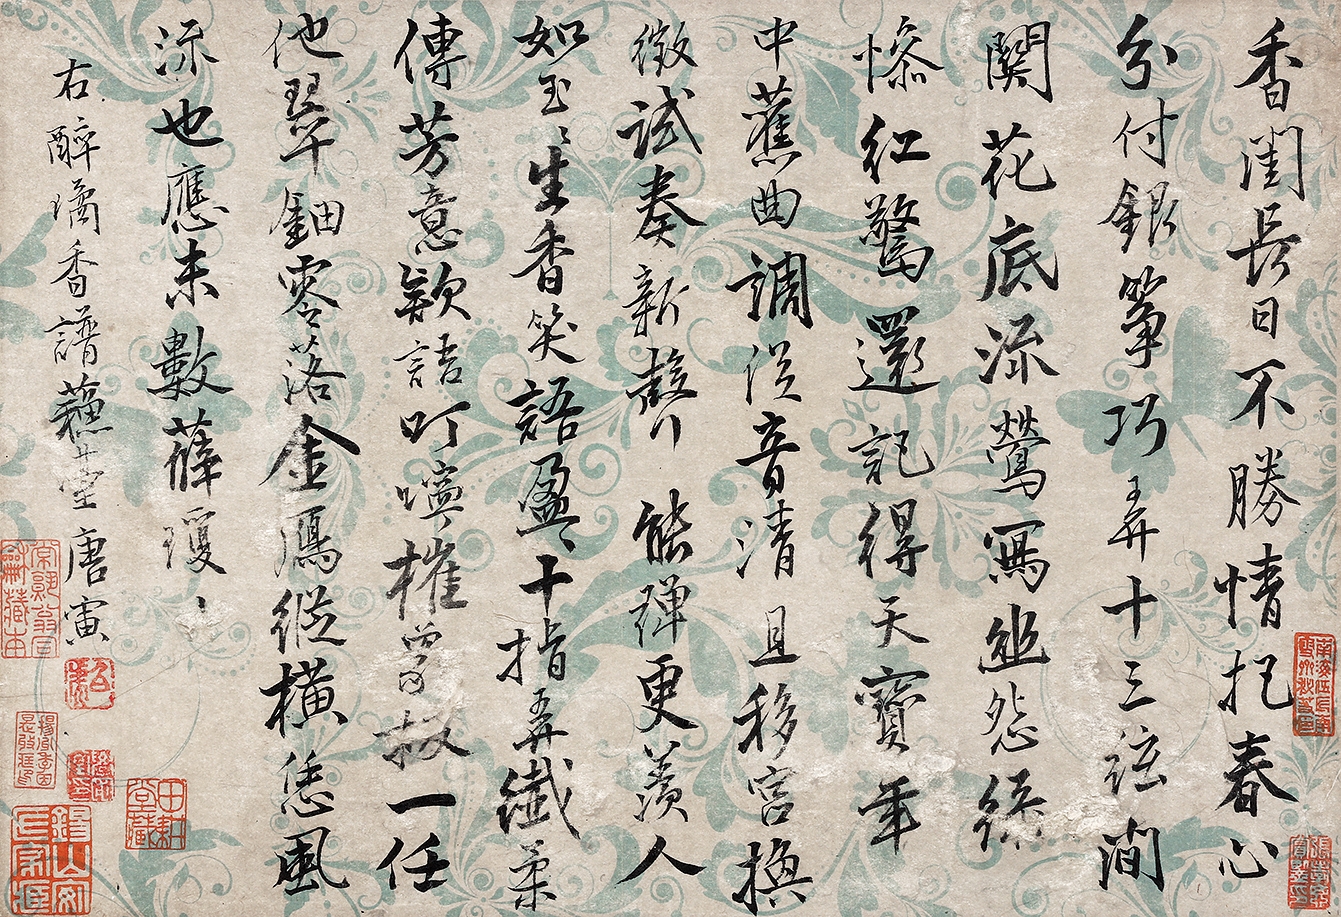 香閨長日不勝情把春心
分付銀筝巧弄十三弦間
關花底流鶯寫幽怨綠
慘紅驚還記得天寶年
中蕉曲調淫音清且移宮換
徵試奏新聲能弹更羨人
如玉〻生香笑語盈〻十指弄纖柔
傳芳意欵語叮嚀摧
一任
他翠鈿零落金鴈縱横恁風
流也應未數薛瓊〻
右醉瑤香譜蘓臺唐寅